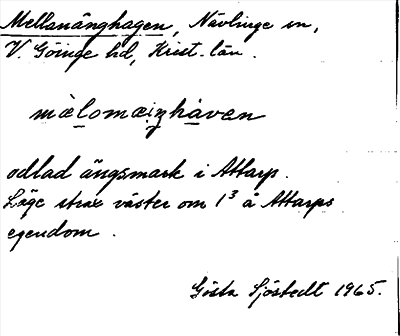 Mellanänghagen, Nävlinge sn,
V. Göinge hd, Krist. län.
odlad ängsmark i Attarp.
Läge strax väster om 1³ å Attarps
egendom.
Gösta Sjöstedt 1965.